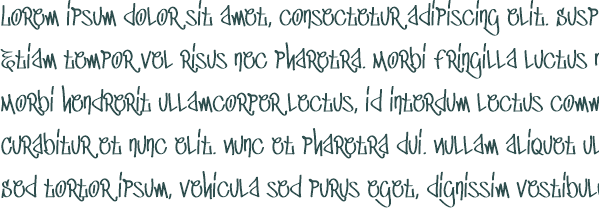 Lorem ipsum dolor sit amet, consectetur adipiscing elit. Susp
Etiam tempor vel risus nec pharetra. Morbi fringilla luctus
Morbi hendrerit ullamcorper lectus, id interdum lectus comm
Curabitur et nunc elit. Nunc et pharetra dui. Nullam aliquet ul
Sed tortor ipsum, vehicula sed purus eget, dignissim vestibul